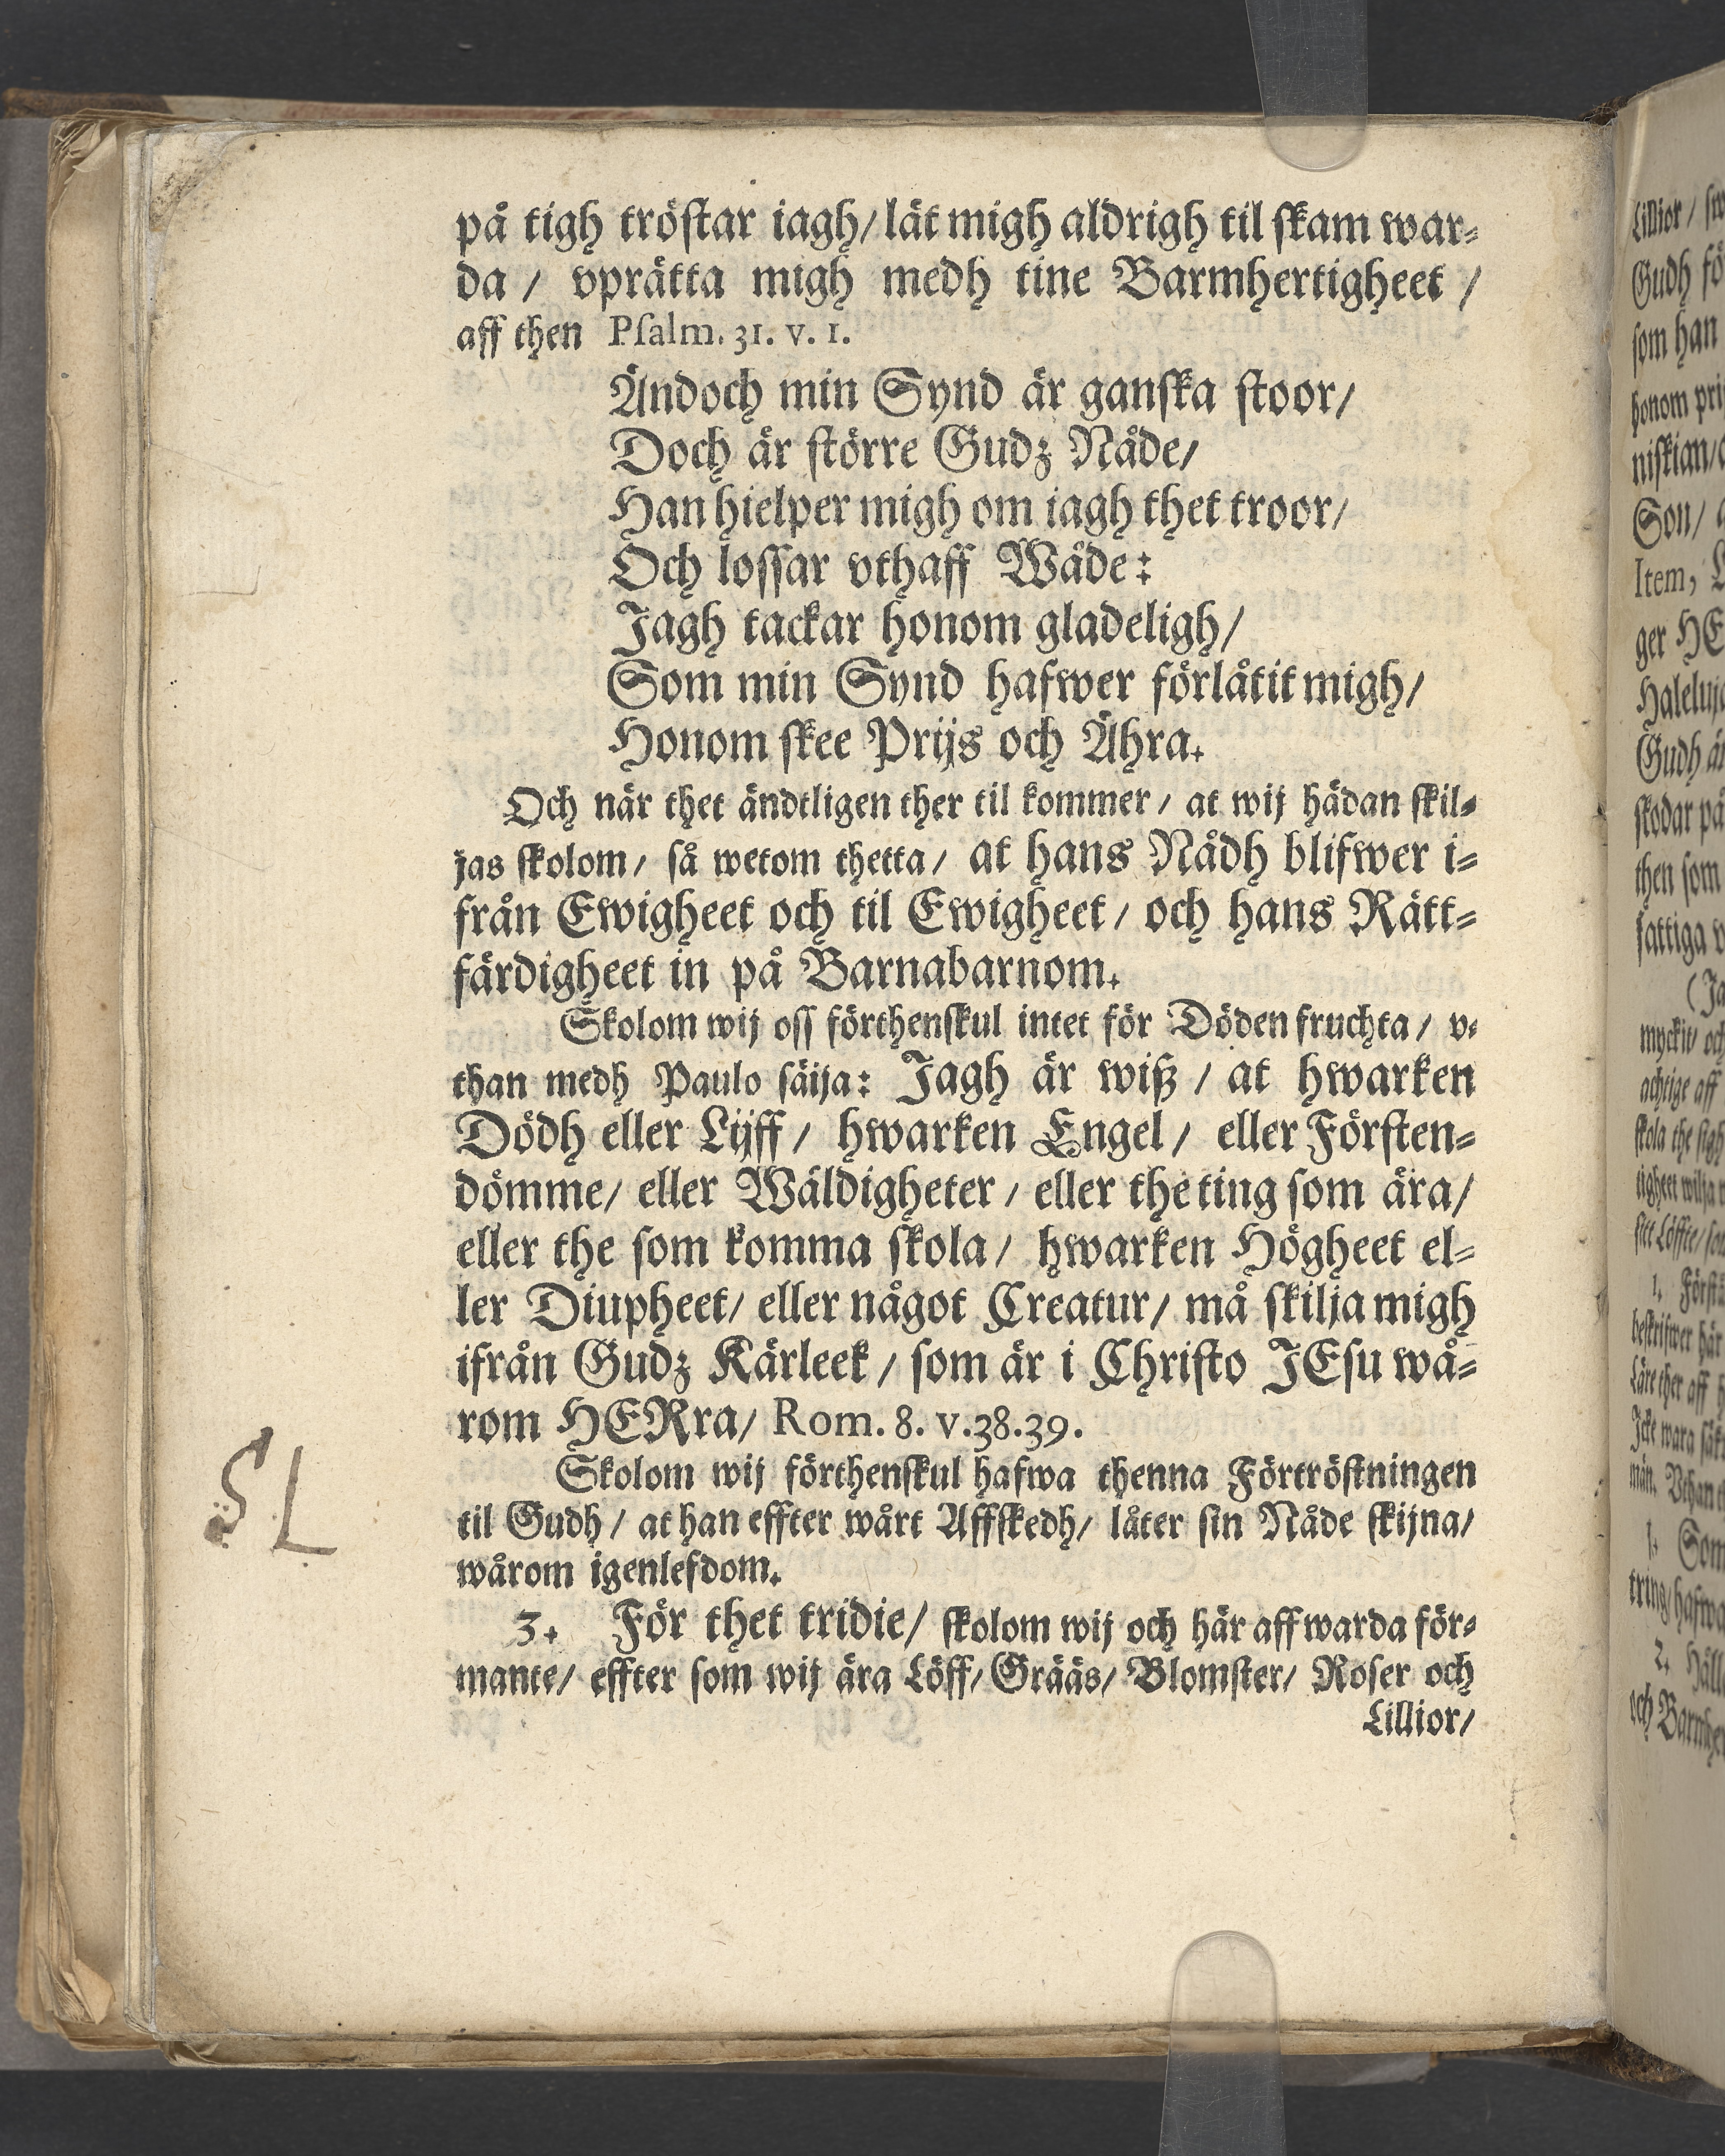 på tigh tröstar iagh/ lät migh aldrigh til skam war-
da / vprätta migh medh tine Barmhertigheet /
aff then Psalm. 31. v. 1.
Ändoch min Synd är ganska stoor/
Doch är större Gudz Nåde/
Han hielper migh om iagh thet troor/
Och lossar vthaff Wåde:
Jagh tackar honom gladeligh/
Som min Synd hafwer förlåtit migh/
Honom skee Prijs och Ähra.
Och när thet ändtligen ther til kommer / at wij hädan skil-
jas skolom/ så wetom thetta/ at hans Nådh blifwer i-
från Ewigheet och til Ewigheet / och hans Rätt-
färdigheet in på Barnabarnom.
Skolom wij oss förthenskul intet för Döden fruchta / v-
than medh Paulo säija: Jagh är wiß / at hwarken
Dödh eller Lijff / hwarken Engel / eller Försten-
dömme/ eller Wäldigheter / eller the ting som ära/
eller the som komma skola / hwarken Högheet el-
ler Diupheet/ eller något Creatur/ må skilja migh
ifrån Gudz Kärleek / som är i Christo JEsu wå-
rom HERra/ Rom. 8. v.38.39.
Skolom wij förthenskul hafwa thenna Förtröstningen
til Gudh / at han effter wårt Affskedh/ låter sin Nåde skijna/
wårom igenlefdom.
3. För thet tridie/ skolom wij och här aff warda för-
mante/ effter som wij ära Löff/ Grääs/ Blomster/ Roser och
Lillior/
SL
Lillior/
Gudh
som han
honom
niskian/
Son/
Item,
ger
Gudh
skodar på
then som
fattiga